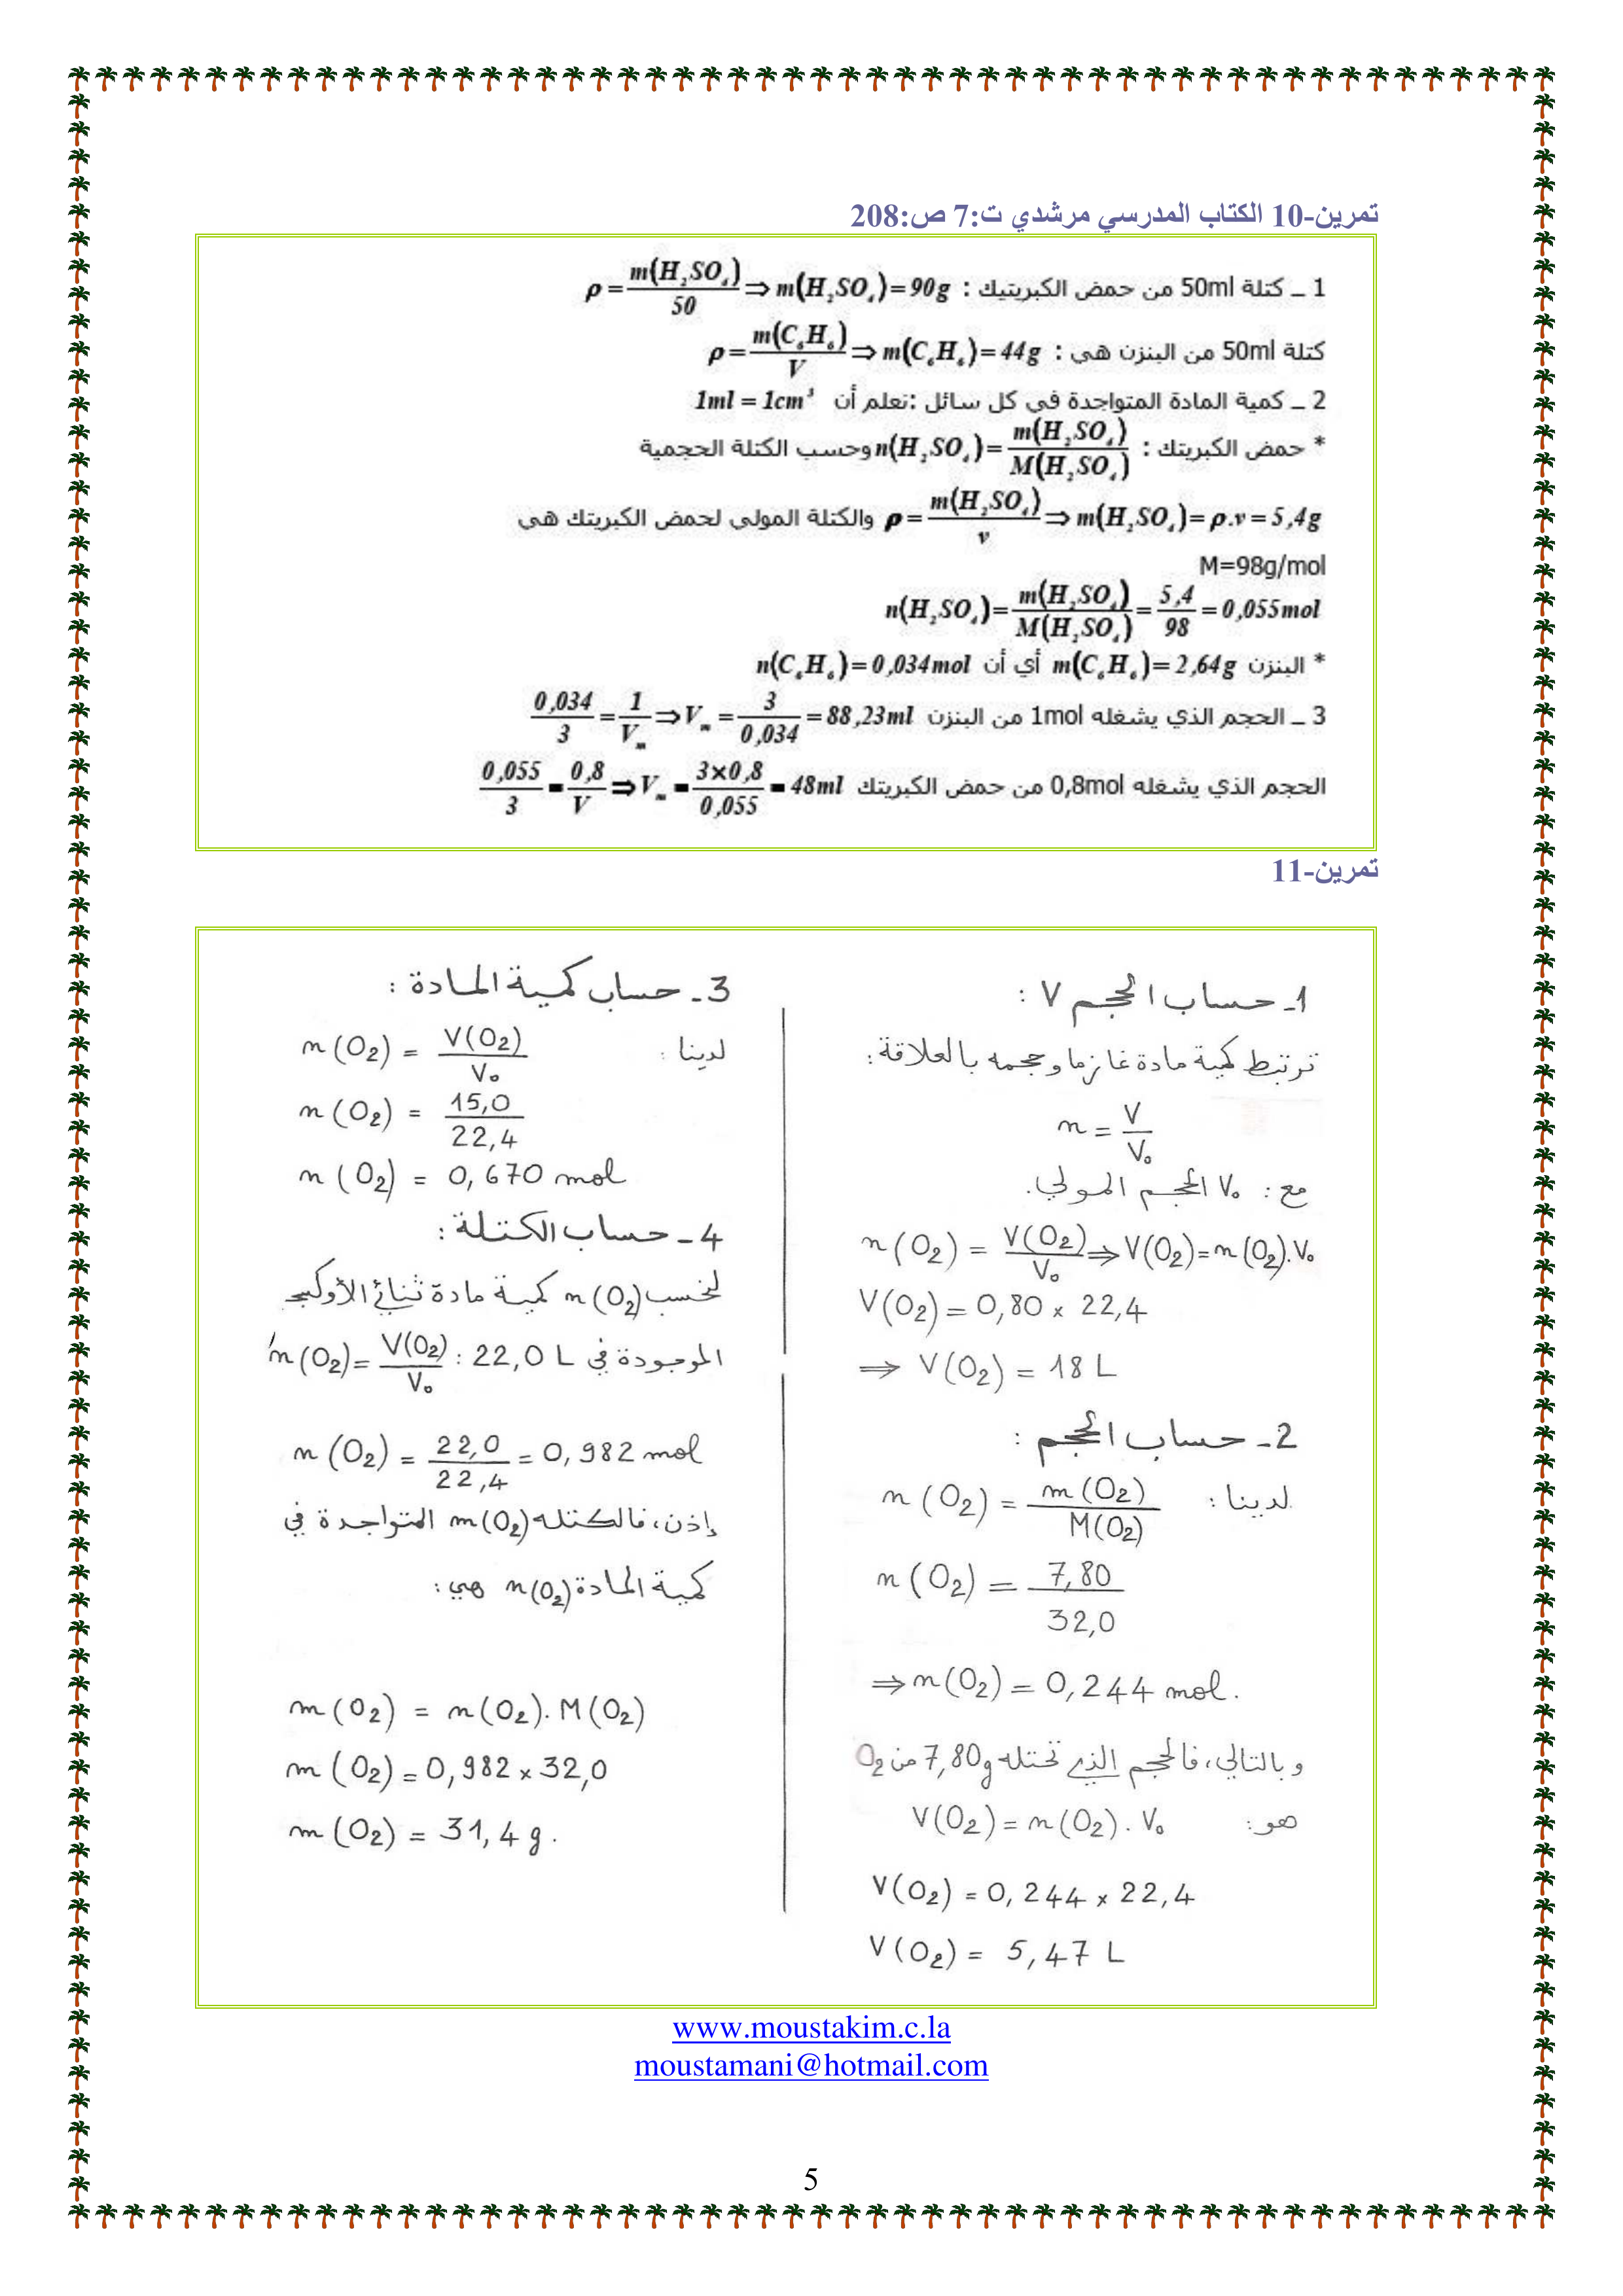 تمرين-10 الكتاب المدرسي مرشدي ت:7 ص:208
1 _ كتلة 50ml من حمض الكبريتيك : ρ = m(H₂SO₄)/50 ⇒ m(H₂SO₄) = 90g
كتلة 50ml من البنزن هي : ρ = m(C₆H₆)/V ⇒ m(C₆H₆) = 44g
2 _ كمية المادة المتواجدة في كل سائل :نعلم أن 1ml = 1cm³
* حمض الكبريتك : n(H₂SO₄) = m(H₂SO₄)/M(H₂SO₄) وحسب الكتلة الحجمية
ρ = m(H₂SO₄)/v ⇒ m(H₂SO₄) = ρ.v = 5,4g والكتلة المولي لحمض الكبريتك هي
M=98g/mol
n(H₂SO₄) = m(H₂SO₄)/M(H₂SO₄) = 5,4/98 = 0,055mol
* البنزن m(C₆H₆) = 2,64g أي أن n(C₆H₆) = 0,034mol
3 _ الحجم الذي يشغله 1mol من البنزن 0,034/3 = 1/Vₘ ⇒ Vₘ = 3/0,034 = 88,23ml
الحجم الذي يشغله 0,8mol من حمض الكبريتك 0,055/3 = 0,8/V ⇒ Vₘ = 3×0,8/0,055 = 48ml
تمرين-11
1- حساب الحجم V :
ترتبط كمية مادة غاز ما وحجمه بالعلاقة :
n = V/V₀
مع : V₀ الحجم المولي.
n(O₂) = V(O₂)/V₀ ⇒ V(O₂) = n(O₂).V₀
V(O₂) = 0,80 × 22,4
⇒ V(O₂) = 18 L
2- حساب الحجم :
لدينا : n(O₂) = m(O₂)/M(O₂)
n(O₂) = 7,80/32,0
⇒ n(O₂) = 0,244 mol.
وبالتالي، فالحجم الذي تحتله 7,80g من O₂
هو: V(O₂) = n(O₂) . V₀
V(O₂) = 0,244 × 22,4
V(O₂) = 5,47 L
3- حساب كمية المادة :
لدينا : n(O₂) = V(O₂)/V₀
n(O₂) = 15,0/22,4
n(O₂) = 0,670 mol
4- حساب الكتلة :
لنحسب n(O₂) كمية مادة ثنائي الأوكسجين
الموجودة في 22,0 L : n(O₂) = V(O₂)/V₀
n(O₂) = 22,0/22,4 = 0,982 mol
إذن، فالكتله m(O₂) المتواجدة في
كمية المادة n(O₂) هي :
m(O₂) = n(O₂). M(O₂)
m(O₂) = 0,982 × 32,0
m(O₂) = 31,4 g.
www.moustakim.c.la
moustamani@hotmail.com
5